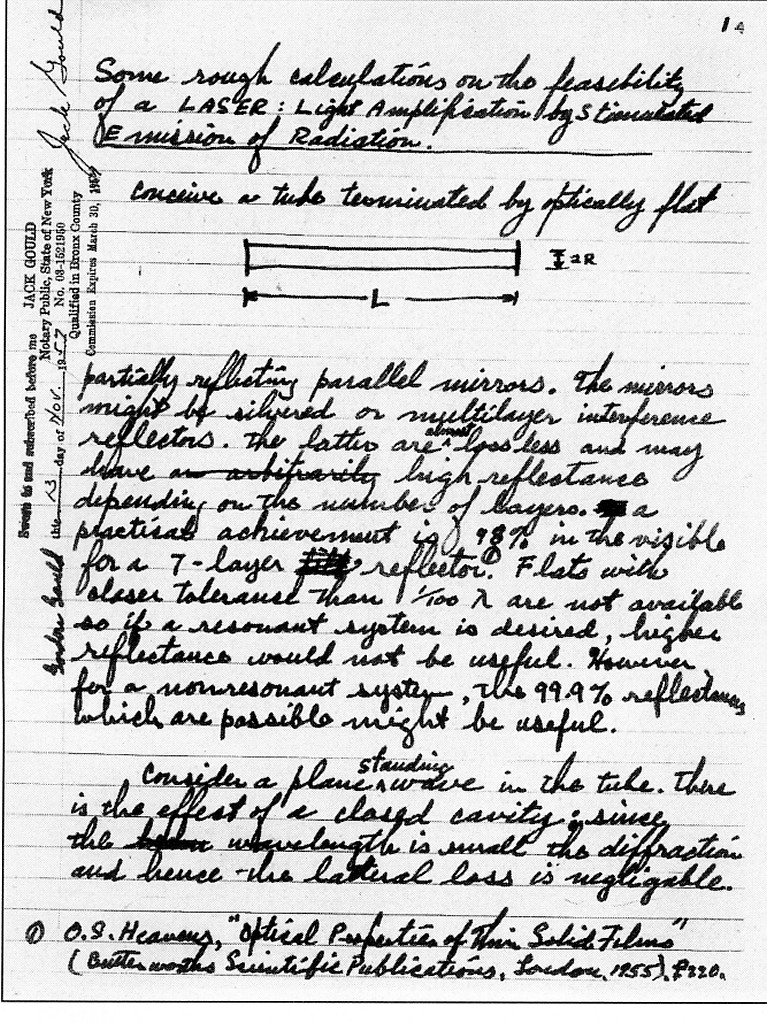 1
Some rough calculations on the feasibility
of a LASER : Light Amplification by Stimulated
Emission of Radiation.
Conceive a tube terminated by optically flat
2R
L
partially reflecting parallel mirrors. The mirrors
might be silvered or multilayer interference
reflectors. The latter are almost lossless and may
have an arbitrarily high reflectance
depending on the number of layers. a
practical achievement is 98% in the visible
for a 7-layer reflector.① Flats with
closer tolerance than 1/100 λ are not available
so if a resonant system is desired, higher
reflectance would not be useful. However,
for a nonresonant system, the 99.9% reflectances
which are possible might be useful.
Consider a plane standing wave in the tube. There
is the effect of a closed cavity; since
the wavelength is small the diffraction
and hence the lateral loss is negligable.
① O.S. Heavens, "Optical Properties of Thin Solid Films"
(Butterworths Scientific Publications, London, 1955), P.220.
Jack Gould
Sworn to and subscribed before me
this 13 day of Nov. 1957
JACK GOULD
Notary Public, State of New York
No. 03-1521950
Qualified in Bronx County
Commission Expires March 30, 19
Gordon Gould